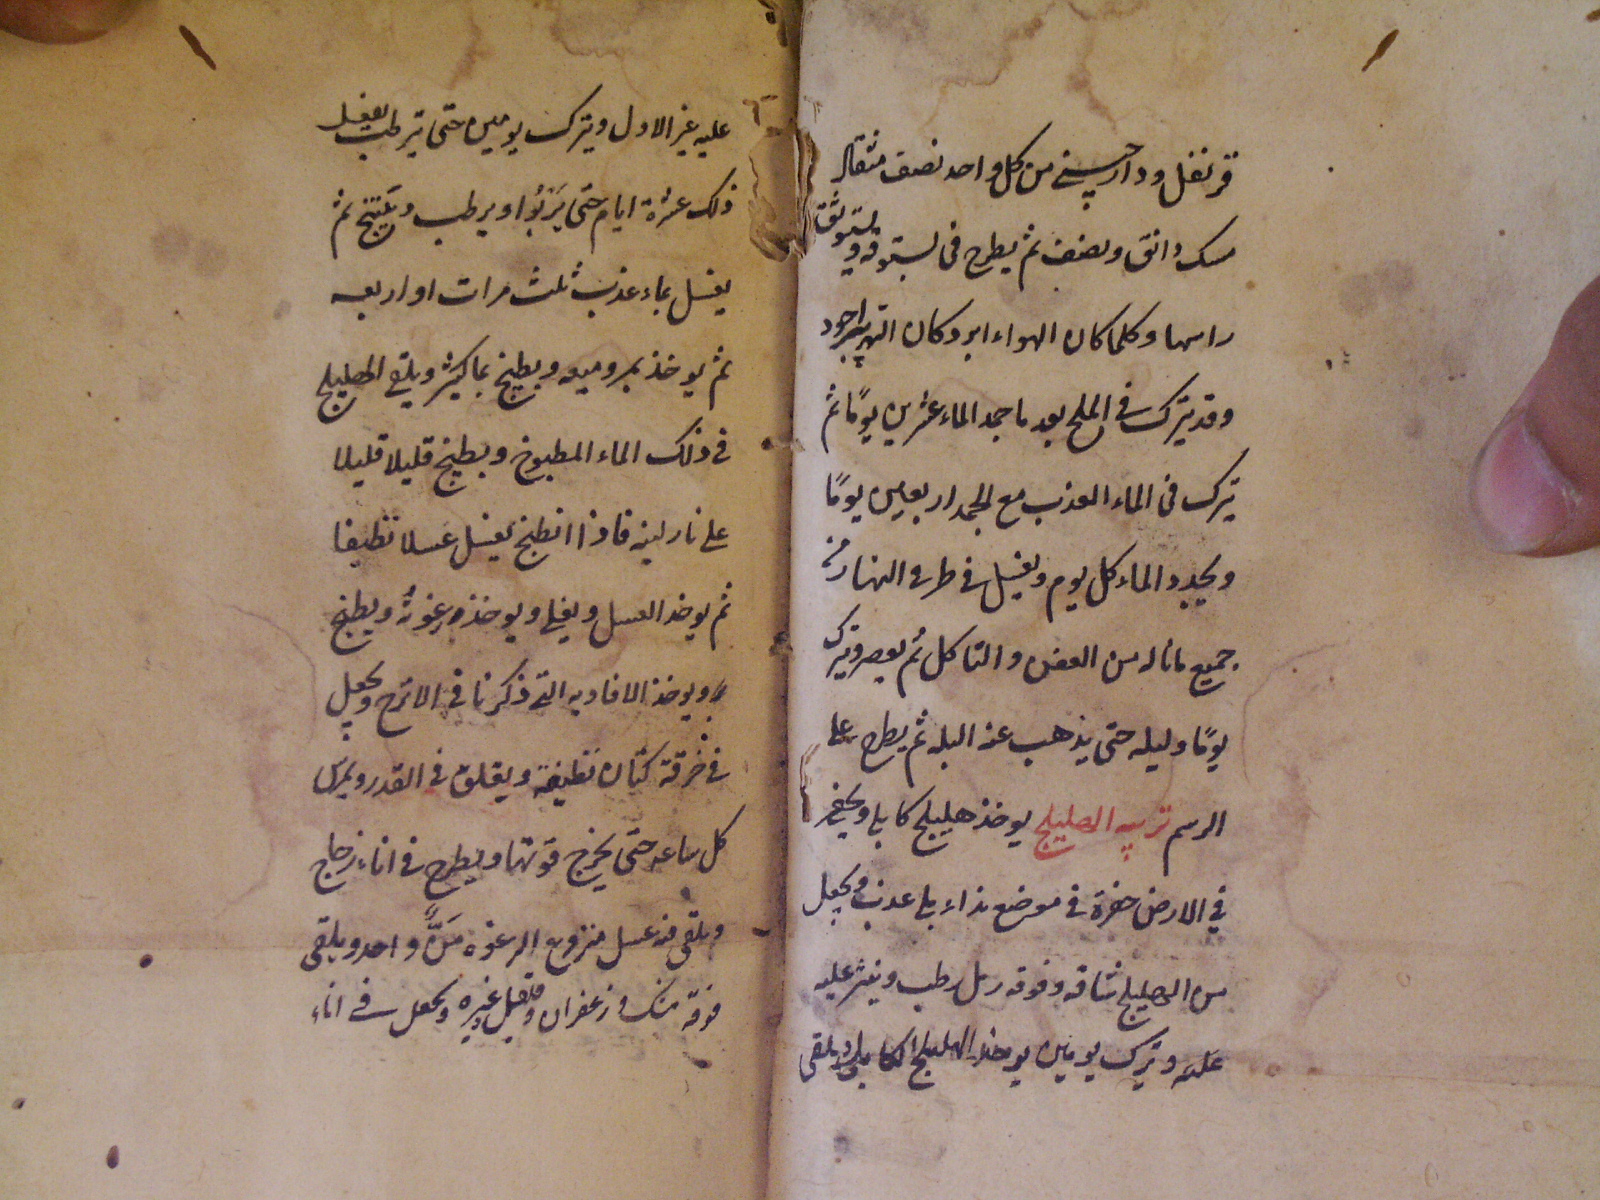 قرنفل ودارچيني من كل واحد نصف مثقال
مسك دانق ونصف ثم يطرح فى بستوقه ويستوثق
راسها وكلما كان الهواء ابرد كان التربيب اجود
وقد يترك فى الملح بعد ما جمد الماء عشرين يومًا ثم
يترك فى الماء العذب مع الجمد اربعين يومًا
ويجدد الماء كل يوم ويغسل فى طرفى النهار من
جميع ما ناله من العفن والتاكل ثم يعصر ويترك
يومًا وليله حتى يذهب عنه البله ثم يطرح على
الرسم تربيه الهليلج يوخذ هليلج كابلى ويحفر
فى الارض حفرة فى موضع نداء بماء عذب ويجعل
من الهليلج ثاقه وفوقه رمل رطب وينثر عليه
عليه ويترك يومين يوخذ الهليلج الكابلى ويلقى
عليه غير الاول ويترك يومين حتى يترطب يفعل
ذلك عشرة ايام حتى يَرْبُوا ويرطب وينتفخ ثم
يغسل بماء عذب ثلث مرات او اربعه
ثم يوخذ بر وميعه ويطبخ بماء كثير ويلقى الهليلج
فى ذلك الماء المطبوخ ويطبخ قليلا قليلا
على نار لينه فاذا انطبخ يغسل غسلا نظيفا
ثم يوخذ العسل ويغلى ويوخذ رغوتُه ويطبخ
به ويوخذ الافاويه التى ذكرنا فى الاترج ويجعل
فى خرقة كتان نظيفة ويعلق فى القدر ويمرس
كل ساعه حتى يخرج قوتها ويطرح فى اناء زجاج
ويلقى فيه عسل منزوع الرغوه مَنٌّ واحد ويلقى
فوقه مسك وزعفران وقيل غيره ويجعل فى اناء